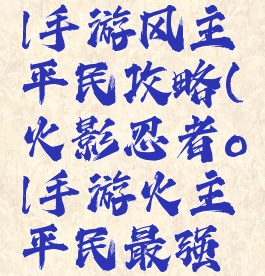 l手游风主
平民攻略(
火影忍者。
l手游火主
平民最强